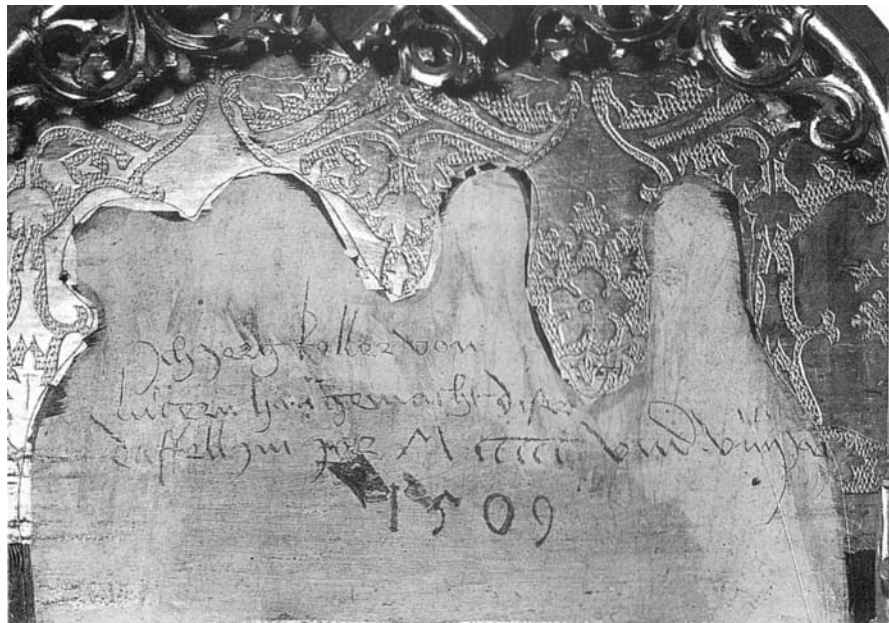 Ich jerg keller von
lucern han gemacht diser
daffell jm jar M ccccc vnd viiij
1509